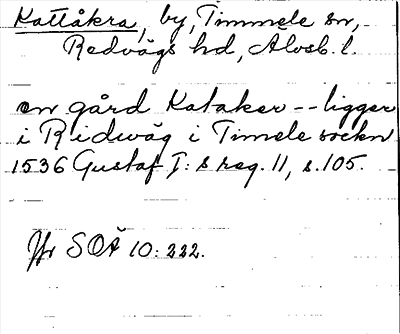 Kattåkra, by, Timmele sn,
Redvägs hd, Älvsb. l.
en gård Kataker -- ligger
i Ridwäg i Timele sockn
1536 Gustaf I: s reg. 11, s. 105.
Jfr SOÄ 10: 222.